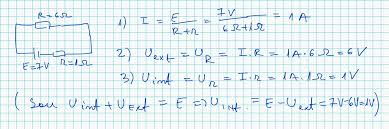 R=6Ω
E=7V R=1Ω
1) I = E/(R+r) = 7V/(6Ω+1Ω) = 1A
2) Uext = UR = I·R = 1A·6Ω = 6V
3) Uint = Ur = I·r = 1A·1Ω = 1V
(sau Uint + Uext = E => Uint = E - Uext = 7V-6V=1V)